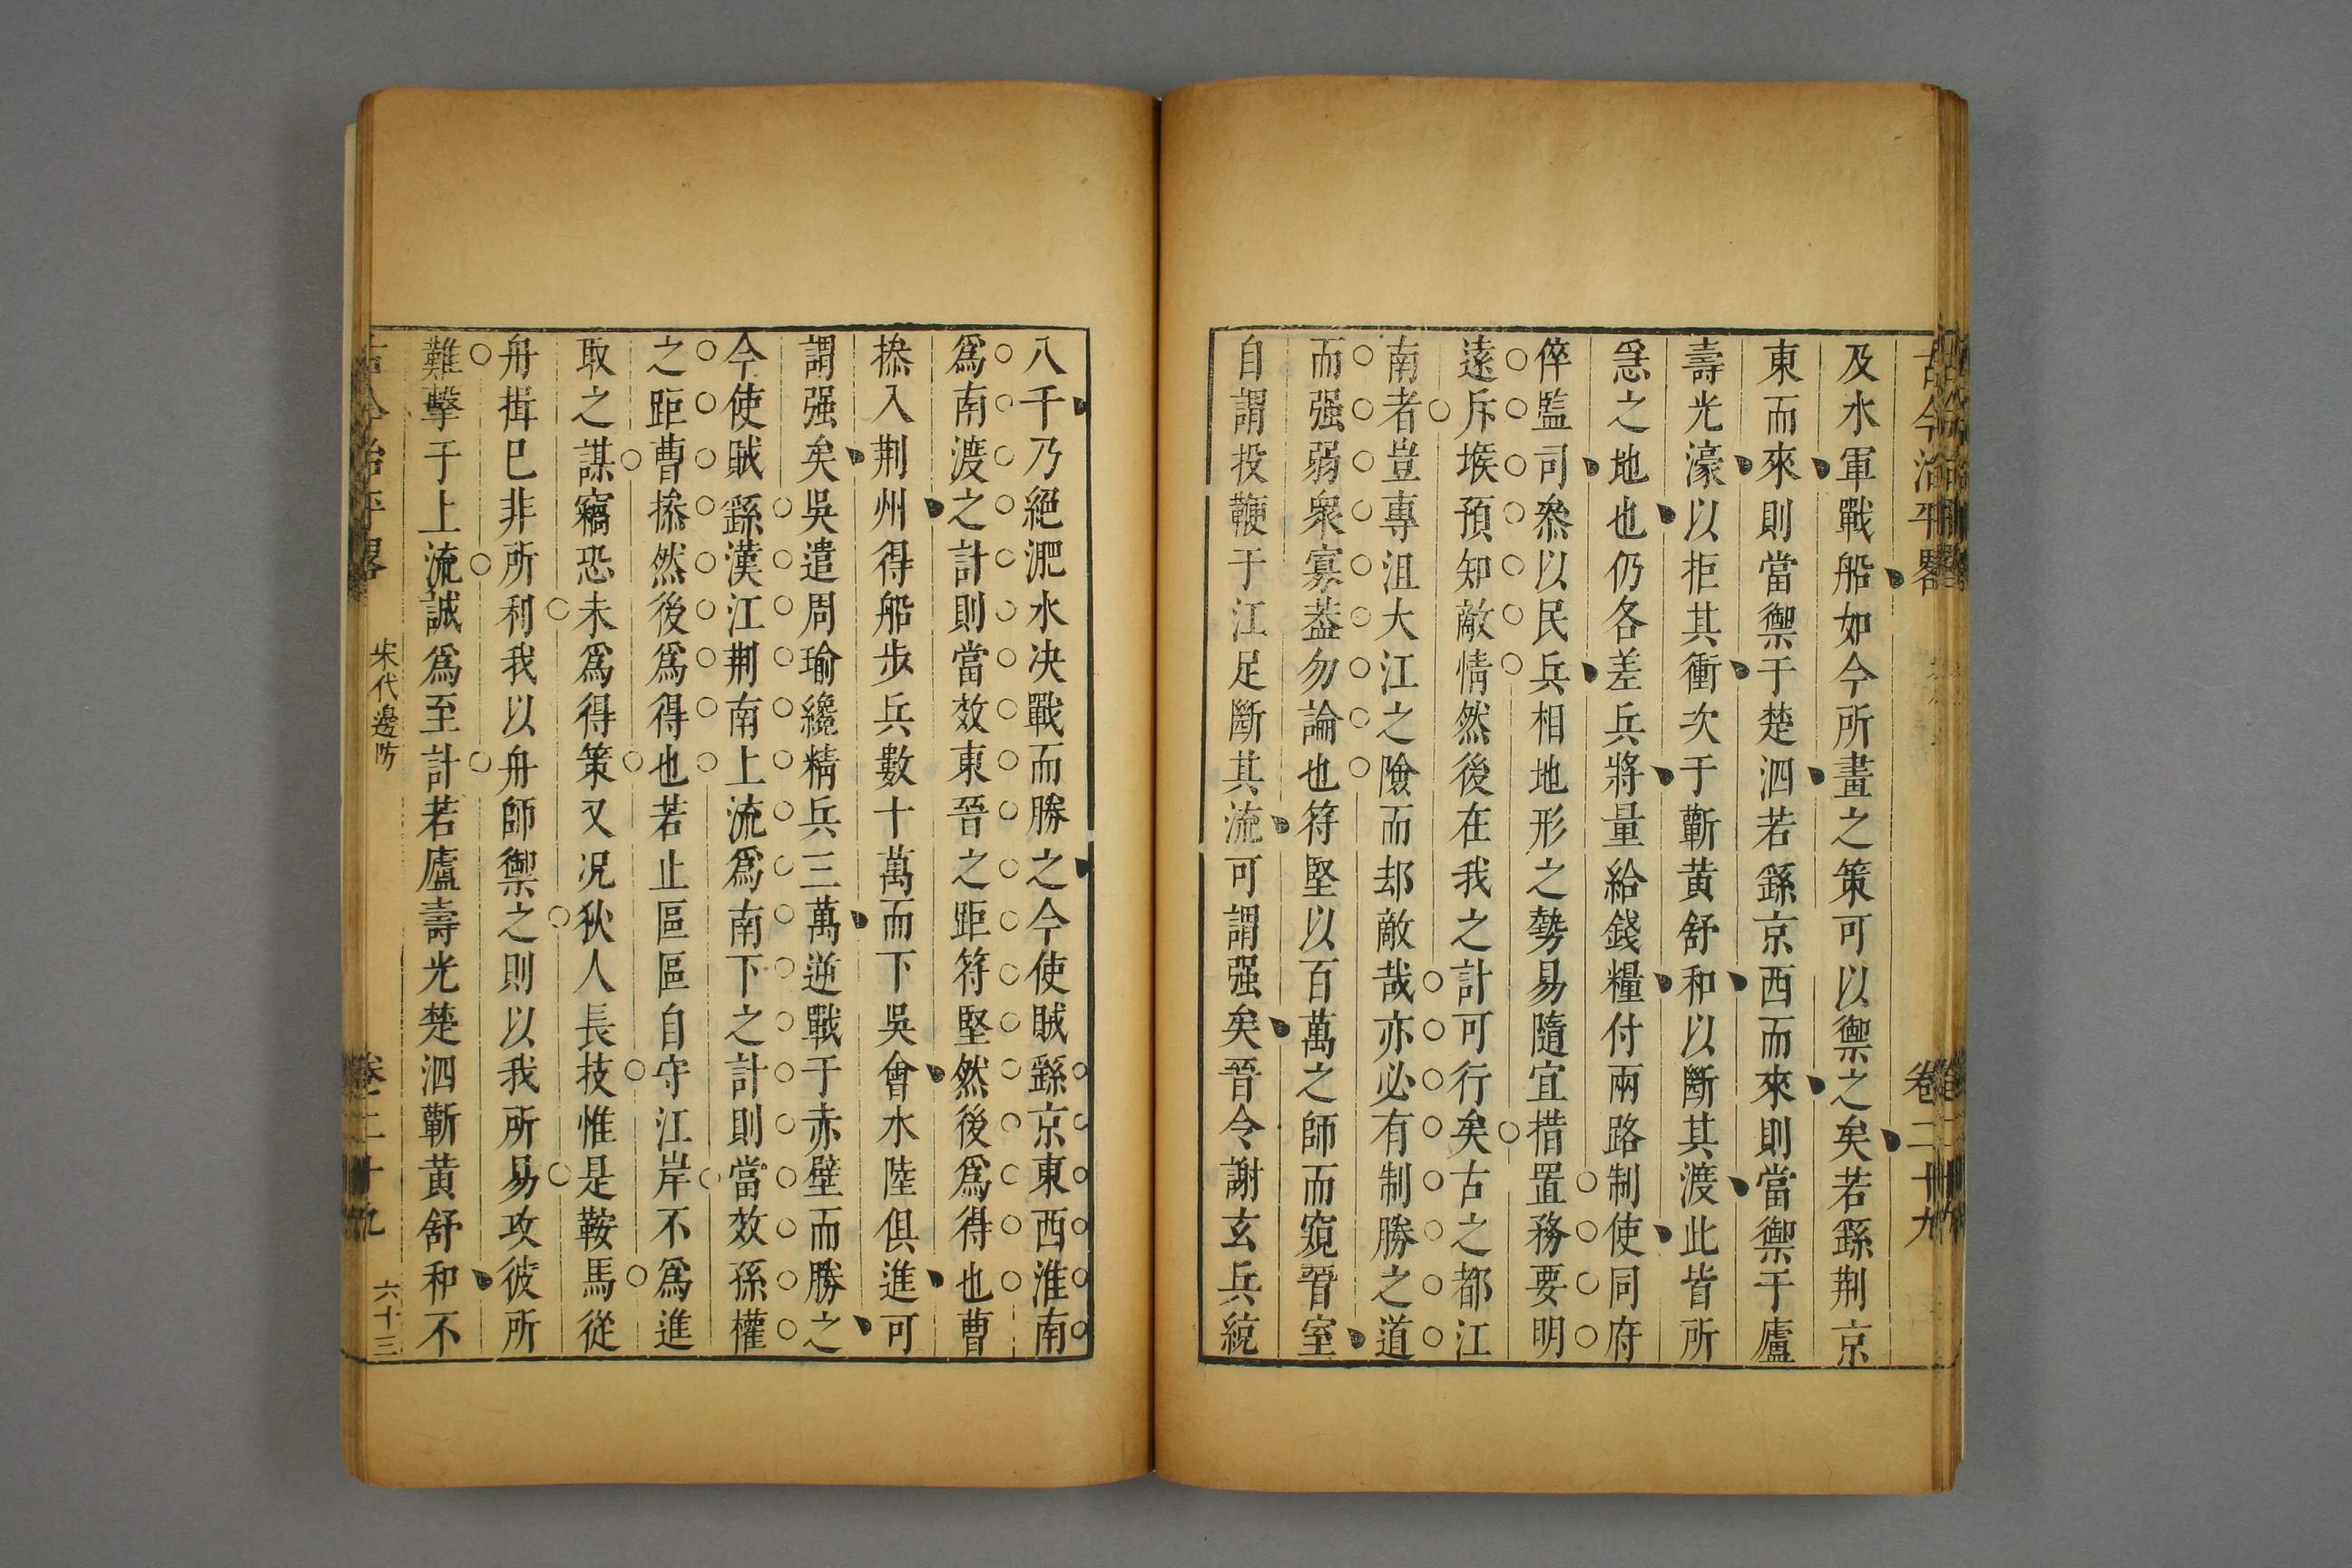 古今治平畧
卷二十九
及水軍戰船如今所畫之策可以禦之矣若繇荆京
東而來則當禦于楚泗若繇京西而來則當禦于廬
壽光濠以拒其衝次于蘄黄舒和以斷其渡此皆所
急之地也仍各差兵將量給錢糧付兩路制使同府
倅監司叅以民兵相地形之勢易隨宜措置務要明
遠斥堠預知敵情然後在我之計可行矣古之都江
南者豈專沮大江之險而却敵哉亦必有制勝之道
而强弱衆寡葢勿論也符堅以百萬之師而窺晉室
自謂投鞭于江足斷其流可謂强矣晉令謝玄兵統
八千乃絕淝水决戰而勝之今使賊繇京東西淮南
爲南渡之計則當效東晉之距符堅然後爲得也曹
操入荆州得船步兵數十萬而下吳會水陸俱進可
謂强矣吳遣周瑜纔精兵三萬逆戰于赤壁而勝之
今使賊繇漢江荆南上流爲南下之計則當效孫權
之距曹操然後爲得也若止區區自守江岸不爲進
取之謀竊恐未爲得策又况狄人長技惟是鞍馬從
舟楫巳非所利我以舟師禦之則以我所易攻彼所
難擊于上流誠爲至計若廬壽光楚泗蘄黄舒和不
古今治平畧
宋代邊防
卷二十九
六十三